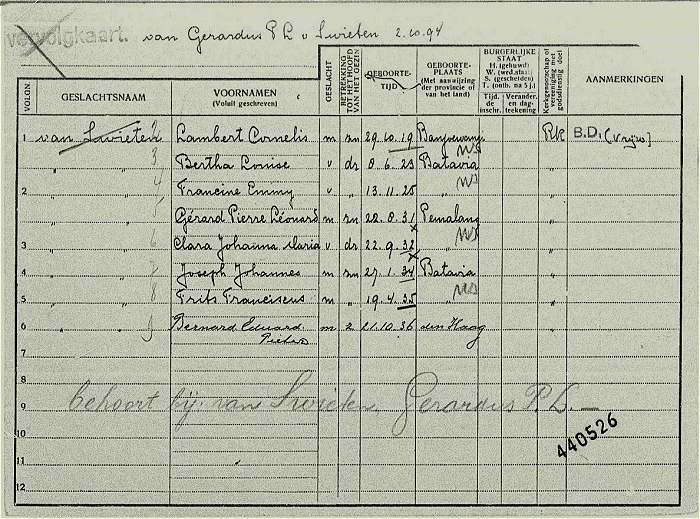 vervolgkaart. van Gerardus P L v Swieten 2.10.94
VOLGN. GESLACHTSNAAM VOORNAMEN (Voluit geschreven) GESLACHT BETREKKING TOT HET HOOFD VAN HET GEZIN GEBOORTE-TIJD GEBOORTE-PLAATS (Met aanwijzing der provincie of van het land) BURGERLIJKE STAAT H. (gehuwd) W. (wed.staat) S. (gescheiden) T. (ontb. na 5 j.) Tijd. de inschr. Verander. en dag-teekening Kerkgenootschap of vereeniging met godsdienstig doel AANMERKINGEN
1 van Swieten 2 Lambert Cornelis m zn 29.10.19 Banjoewangi RK B.D. (Vrijw)
3 Bertha Louise v dr 8.6.23 Batavia NS "
2 " 4 Francine Emmy v " 13.11.25 " NS "
5 Gérard Pierre Léonard m zn 22.8.31 Pemalang "
3 6 Clara Johanna Maria v dr 22.9.32 " NS "
4 " 7 Joseph Johannes m zn 27.1.34 Batavia "
5 " 8 Frits Franciscus m " 19.4.35 " NS "
6 " " 9 Bernard Eduard Pieter m z 21.10.36 den Haag "
7
8
9 behoort bij van Swieten, Gerardus P. L. —
10
440526
11
12